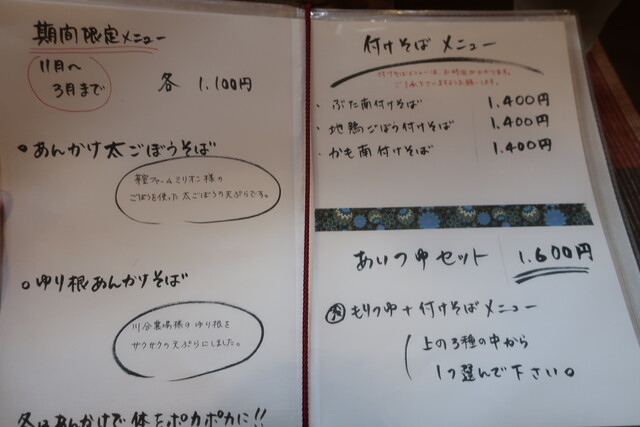 期間限定メニュー
11月〜
3月まで
各 1.100円
あんかけ太ごぼうそば
ファームミリオン様の
ごぼうを使った太ごぼうの天ぷらです。
ゆり根あんかけそば
川合農場様のゆり根を
サクサクの天ぷらにしました。
冬はあんかけで体をポカポカに!!
付けそばメニュー
付けそばメニューは、お時間がかかります。
ご了承下さいますようお願い致します。
・ぶた南付けそば 1.400円
・地鶏ごぼう付けそば 1.400円
・かも南付けそば 1.400円
あいつゆセット 1.600円
もりつゆ+付けそばメニュー
上の3種の中から
1つ選んで下さい。